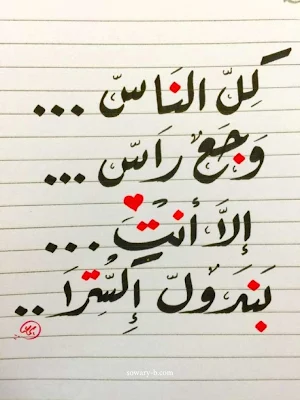 كَلّ النَاسّ ...
وَجَعْ رَاسّ ...
إلاَّ أنتَ ...
بَندَولّ إِكسّترَا ..
sowary-h.com